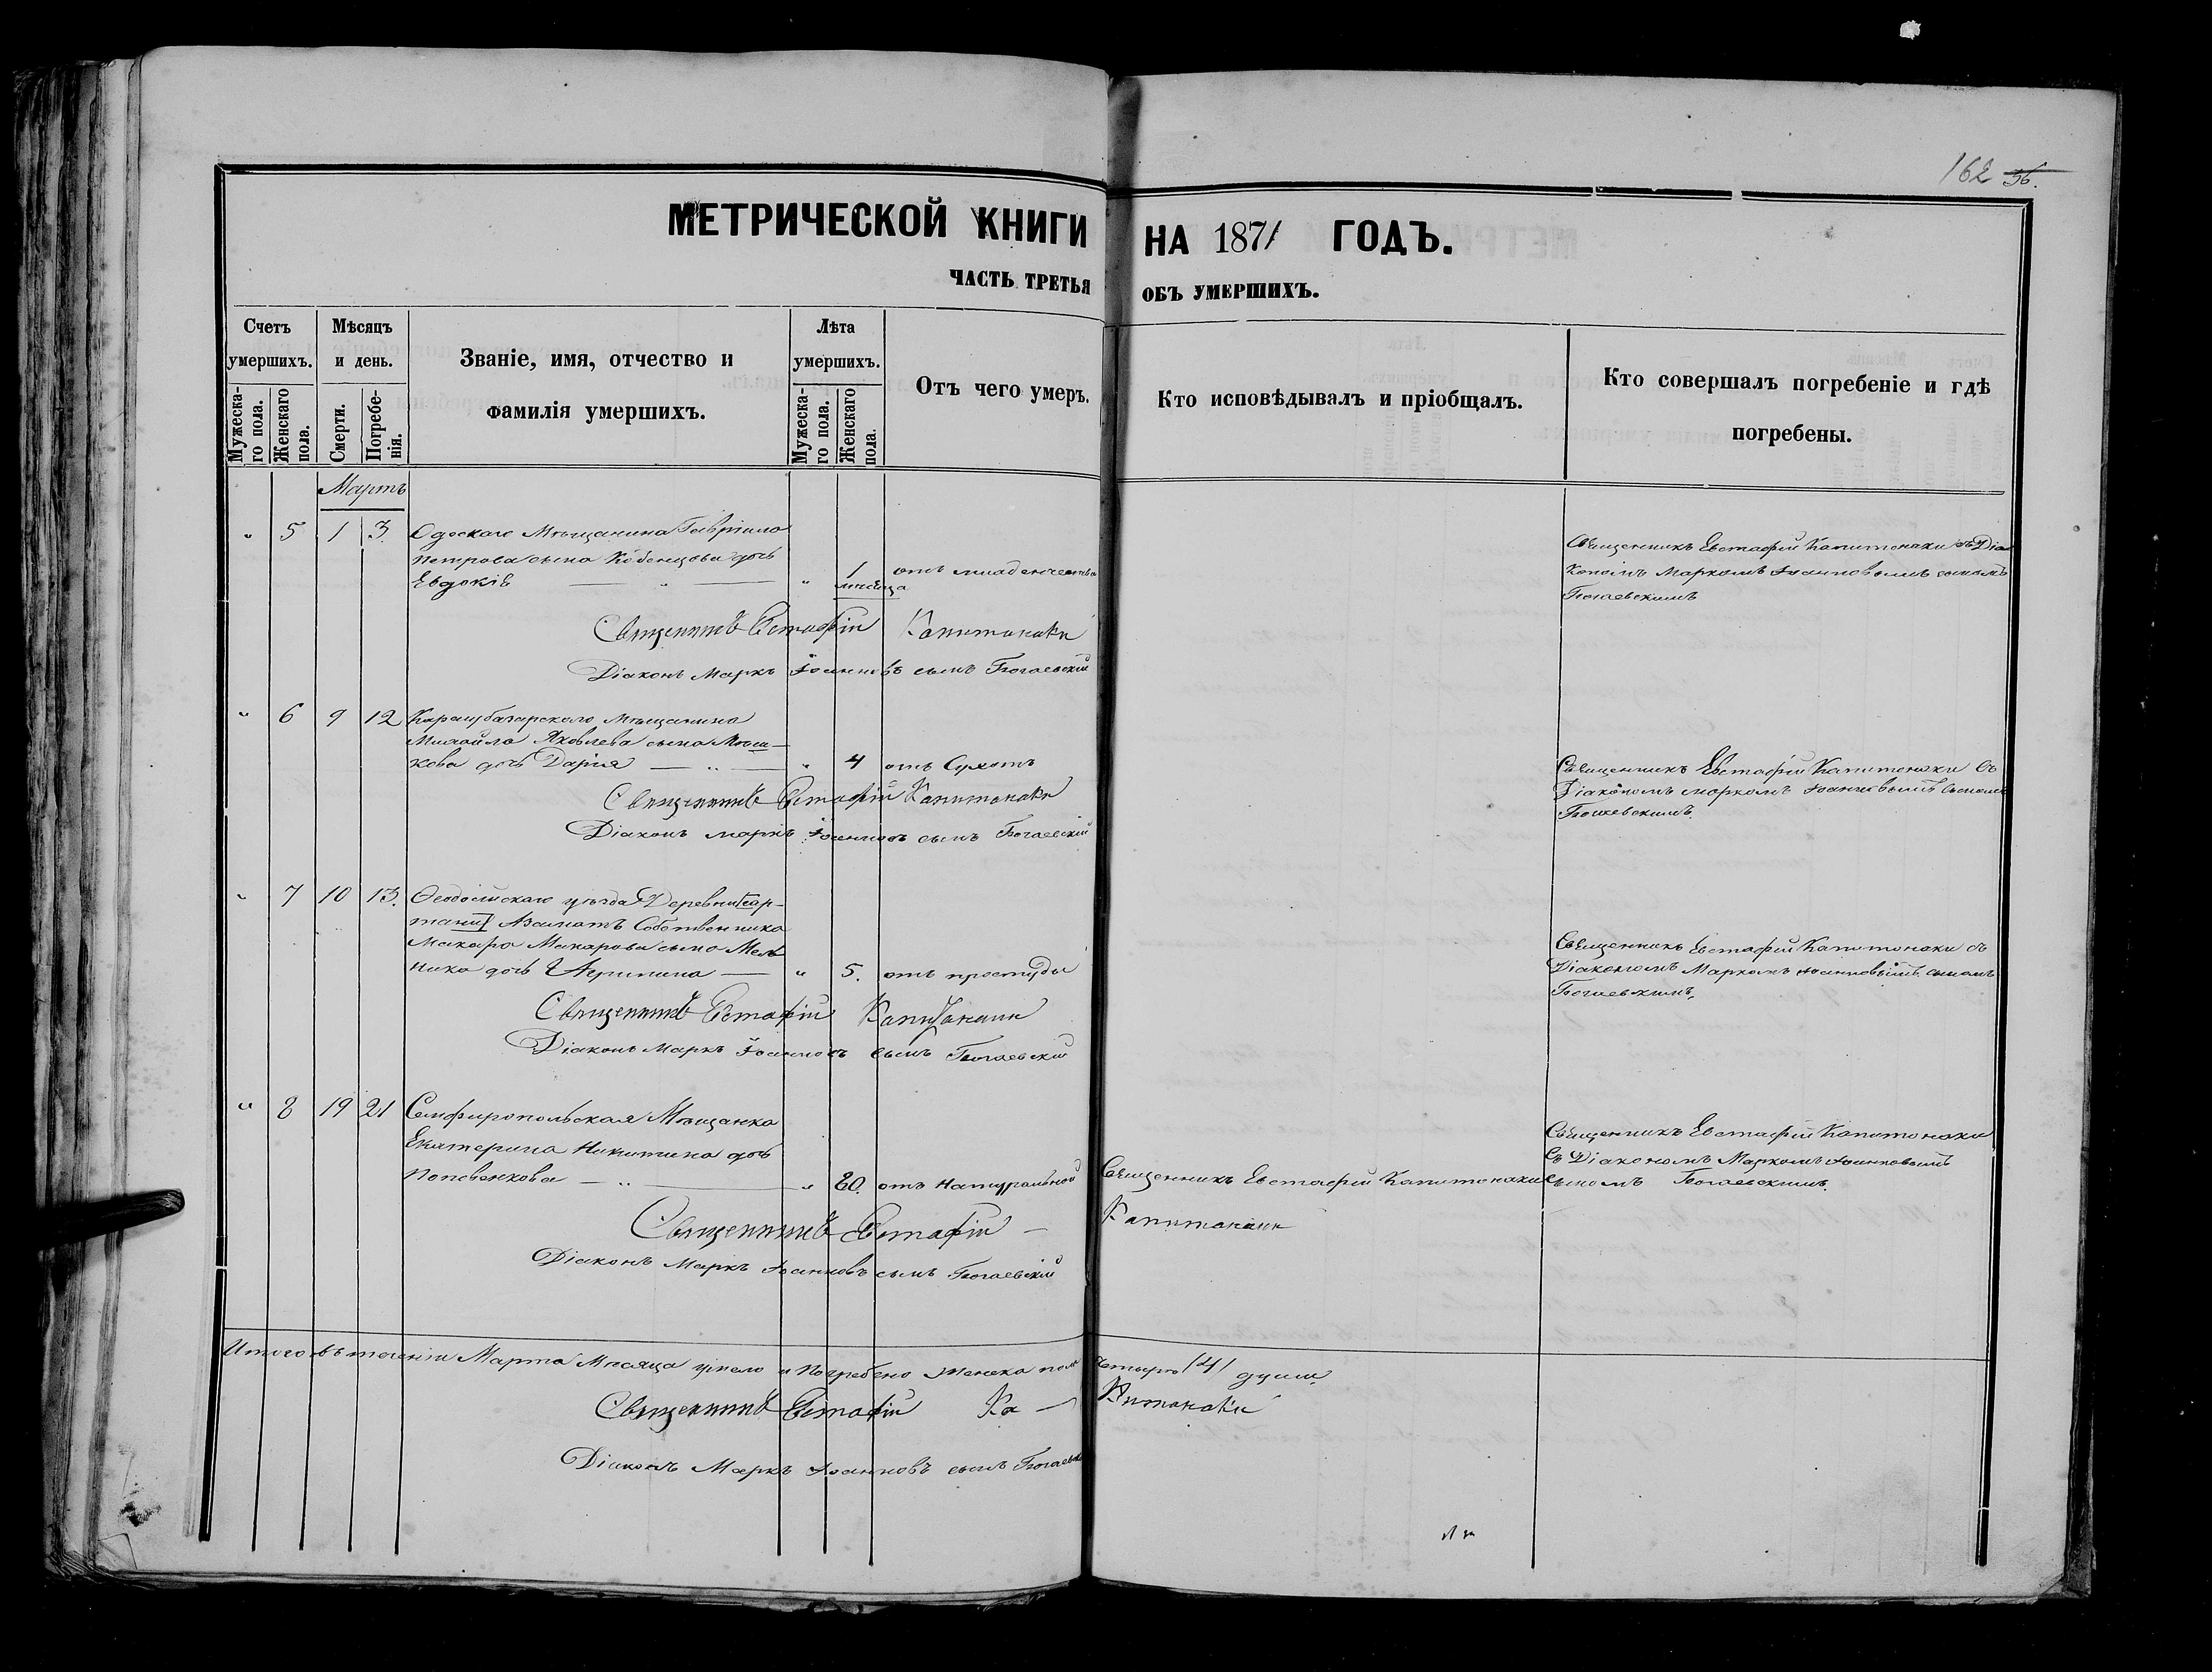 162 36.
МЕТРИЧЕСКОЙ КНИГИ НА 1871 ГОДЪ.
ЧАСТЬ ТРЕТЬЯ ОБЪ УМЕРШИХЪ.
Счетъ умершихъ.
Мужеска-го пола.
Женскаго пола.
Мѣсяцъ и день.
Смерти.
Погребе-нія.
Званіе, имя, отчество и фамилія умершихъ.
Лѣта умершихъ.
Мужеска-го пола.
Женскаго пола.
Отъ чего умеръ.
Кто исповѣдывалъ и пріобщалъ.
Кто совершалъ погребеніе и гдѣ погребены.
Мартъ
" 5 1 3. Одескаго Мѣщанина Гавріила
Петрова сына дочь
Евдокія " 1 мѣсяца отъ младенчества
Священникъ Евстафій Капитонаки съ Діа
кономъ Маркомъ Іоанновымъ сыномъ
Богаевскимъ
Священникъ Евстафій Капитонаки
Діаконъ Маркъ Іоанновъ сынъ Богаевскій
" 6 9 12 Карасубазарскаго Мѣщанина
Михаила Яковлева сына
кова дочь Дарія " 4 отъ Сухотъ
Священникъ Евстафій Капитонаки съ
Діакономъ Маркомъ Іоанновымъ Сыномъ
Богаевскимъ.
Священникъ Евстафій Капитонаки
Діаконъ Маркъ Іоанновъ сынъ Богаевскій
" 7 10 13. Ѳеодосійскаго уѣзда Деревни
Собственника
Макара Макарова сына Мель
ника дочь Агрипина " 5. отъ простуды
Священникъ Евстафій Капитонаки съ
Діакономъ Маркомъ Іоанновымъ сыномъ
Богаевскимъ.
Священникъ Евстафій Капитанаки
Діаконъ Маркъ Іоанновъ сынъ Богаевскій
" 8 19 21 Симферопольская Мѣщанка
Екатерина Никитина дочь
" 80. отъ Натуральной
Священникъ Евстафій Капитонаки
Священникъ Евстафій Капитонаки
съ Діакономъ Маркомъ Іоанновымъ
сыномъ Богаевскимъ.
Священникъ Евстафій — Капитанаки
Діаконъ Маркъ Іоанновъ сынъ Богаевскій
Итого въ теченіи Марта Мѣсяца умерло и Погребено женска пола четыре /4/ души.
Священникъ Евстафій Ка — питанаки
Діаконъ Маркъ Іоанновъ сынъ Богаевскій